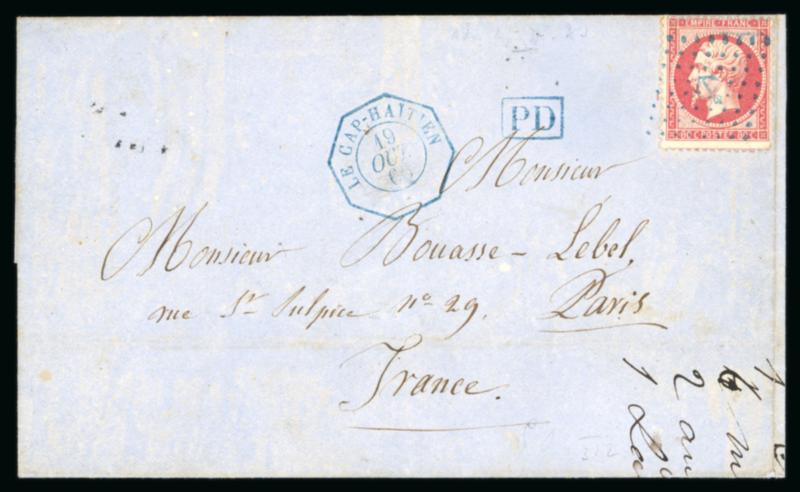 EMPIRE FRANC
80C POSTES 80C
LE CAP-HAITIEN
19
OCT
PD
Monsieur
Monsieur Bouasse-Lebel,
rue St Sulpice no 29. Paris
France.